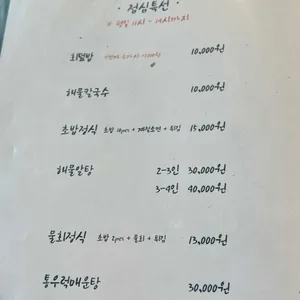 · 점심특선 ·
회덮밥 10,000원
해물칼국수 10,000원
초밥정식 초밥 10pcs + 계절소면 + 튀김 15,000원
해물알탕 2-3인 30,000원
3-4인 40,000원
물회정식 초밥 2pcs + 물회 + 튀김 13,000원
통우럭매운탕 30,000원